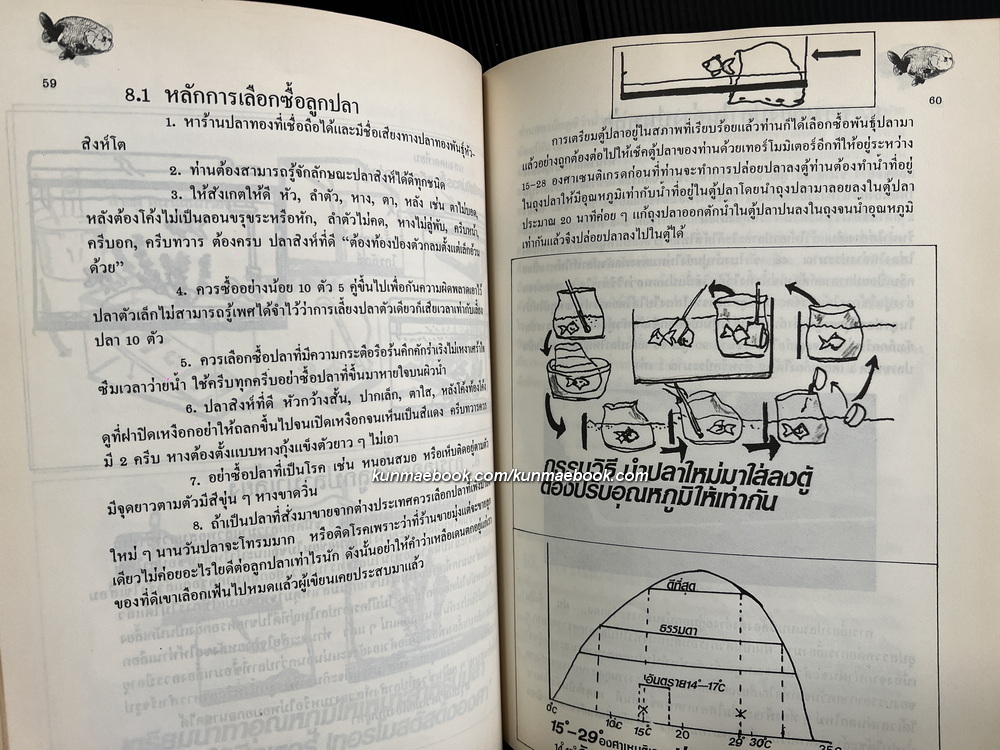 59
8.1 หลักการเลือกซื้อลูกปลา
1. หาร้านปลาทองที่เชื่อถือได้และมีชื่อเสียงทางปลาทองพันธุ์หัว-
สิงห์โต
2. ท่านต้องสามารถรู้จักลักษณะปลาสิงห์ได้ดีทุกชนิด
3. ให้สังเกตให้ดี หัว, ลำตัว, หาง, ตา, หลัง เช่น ตาไม่บอด,
หลังต้องโค้งไม่เป็นลอนขรุขระหรือหัก, ลำตัวไม่คด, หางไม่ลู่พับ, ครีบหน้า,
ครีบอก, ครีบทวาร ต้องครบ ปลาสิงห์ที่ดี “ต้องท้องป่องตัวกลมตั้งแต่เล็กอ้วน
ด้วย”
4. ควรซื้ออย่างน้อย 10 ตัว 5 คู่ขึ้นไปเพื่อกันความผิดพลาดเอาไว้
ปลาตัวเล็กไม่สามารถรู้เพศได้จำไว้ว่าการเลี้ยงปลาตัวเดียวก็เสียเวลาเท่ากับเลี้ยง
ปลา 10 ตัว
5. ควรเลือกซื้อปลาที่มีความกระตือรือร้นคึกคักร่าเริงไม่เหงาเศร้าโศก
ซึมเวลาว่ายน้ำ ใช้ครีบทุกครีบอย่าซื้อปลาที่ขึ้นมาหายใจบนผิวน้ำ
6. ปลาสิงห์ที่ดี หัวกว้างสั้น, ปากเล็ก, ตาใส, หลังโค้งท้องโค้ง
ดูที่ฝาปิดเหงือกอย่าให้ถลกขึ้นไปจนเปิดเหงือกจนเห็นเป็นสีแดง ครีบทวารควร
มี 2 ครีบ หางต้องตั้งแบบหางกุ้งแข็งตัวยาว ๆ ไม่เอา
7. อย่าซื้อปลาที่เป็นโรค เช่น หนอนสมอ หรือเห็บติดอยู่ตามตัว
มีจุดยาวตามตัวมีสีขุ่น ๆ หางขาดวิ่น
8. ถ้าเป็นปลาที่สั่งมาขายจากต่างประเทศควรเลือกปลาที่เพิ่งมา
ใหม่ ๆ นานวันปลาจะโทรมมาก หรือติดโรคเพราะว่าที่ร้านขายมุ่งแต่จะขายลูก
เดียวไม่ค่อยอะไรใยดีต่อลูกปลาเท่าไรนัก ดังนั้นอย่าให้คำว่าเหลือเดนตกอยู่แก่เรา
ของที่ดีเขาเลือกเฟ้นไปหมดแล้วผู้เขียนเคยประสบมาแล้ว
60
การเตรียมตู้ปลาอยู่ในสภาพที่เรียบร้อยแล้วท่านก็ได้เลือกซื้อพันธุ์ปลามา
แล้วอย่างถูกต้องต่อไปให้เช็คตู้ปลาของท่านด้วยเทอร์โมมิเตอร์อีกทีให้อยู่ระหว่าง
15-28 องศาเซนติเกรดก่อนที่ท่านจะทำการปล่อยปลาลงตู้ท่านต้องทำน้ำที่อยู่
ในถุงปลาให้มีอุณหภูมิเท่ากับน้ำที่อยู่ในตู้ปลาโดยนำถุงปลามาลอยลงในตู้ปลา
ประมาณ 20 นาทีค่อย ๆ แก้ถุงปลาออกตักน้ำในตู้ปลาปนลงในถุงจนน้ำอุณหภูมิ
เท่ากันแล้วจึงปล่อยปลาลงไปในตู้ได้
กรรมวิธี นำปลาใหม่มาใส่ลงตู้
ต้องปรับอุณหภูมิให้เท่ากัน
kunmaebook.com/kunmaebook.com
ดีที่สุด
ธรรมดา
อันตราย 14°-17°C
0°C 10°C 15°C 20 29° 30°C
15°-29° องศา